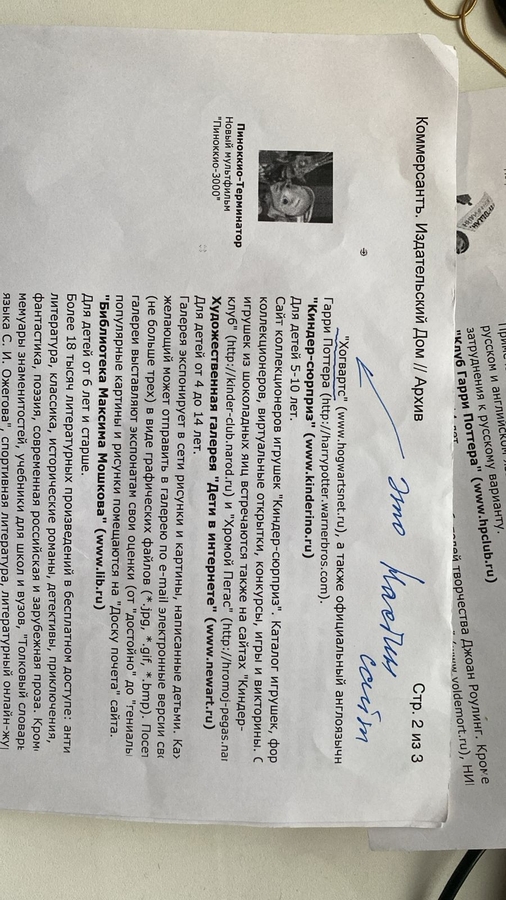 Коммерсантъ. Издательский Дом // Архив
Стр. 2 из 3
Это Настин сайт
"Хогвартс" (www.hogwartsnet.ru), а также официальный англоязычн
Гарри Поттера (http://harrypotter.warnerbros.com).
"Киндер-сюрприз" (www.kinderino.ru)
Для детей 5-10 лет.
Сайт коллекционеров игрушек "Киндер-сюрприз". Каталог игрушек, фор
коллекционеров, виртуальные открытки, конкурсы, игры и викторины. С
игрушек из шоколадных яиц встречаются также на сайтах "Киндер-
клуб" (http://kinder-club.narod.ru) и "Хромой Пегас" (http://hromoj-pegas.nar
Художественная галерея "Дети в интернете" (www.newart.ru)
Для детей от 4 до 14 лет.
Галерея экспонирует в сети рисунки и картины, написанные детьми. Ка
желающий может отправить в галерею по e-mail электронные версии сво
(не больше трех) в виде графических файлов (*.jpg, *.gif, *.bmp). Посет
галереи выставляют экспонатам свои оценки (от "достойно" до "гениаль
популярные картины и рисунки помещаются на "Доску почета" сайта.
"Библиотека Максима Мошкова" (www.lib.ru)
Для детей от 6 лет и старше.
Более 18 тысяч литературных произведений в бесплатном доступе: анти
литература, классика, исторические романы, детективы, приключения,
фантастика, поэзия, современная российская и зарубежная проза. Кром
мемуары знаменитостей, учебники для школ и вузов, "Толковый словарь
языка С. И. Ожегова", спортивная литература, литературный онлайн-жу
Пиноккио-Терминатор
Новый мультфильм
"Пиноккио-3000"
русском и английском
затруднения к русскому варианту.
"Клуб Гарри Поттера" (www.hpclub.ru)
творчества Джоан Роулинг. Кроме
www.voldemort.ru), НИ